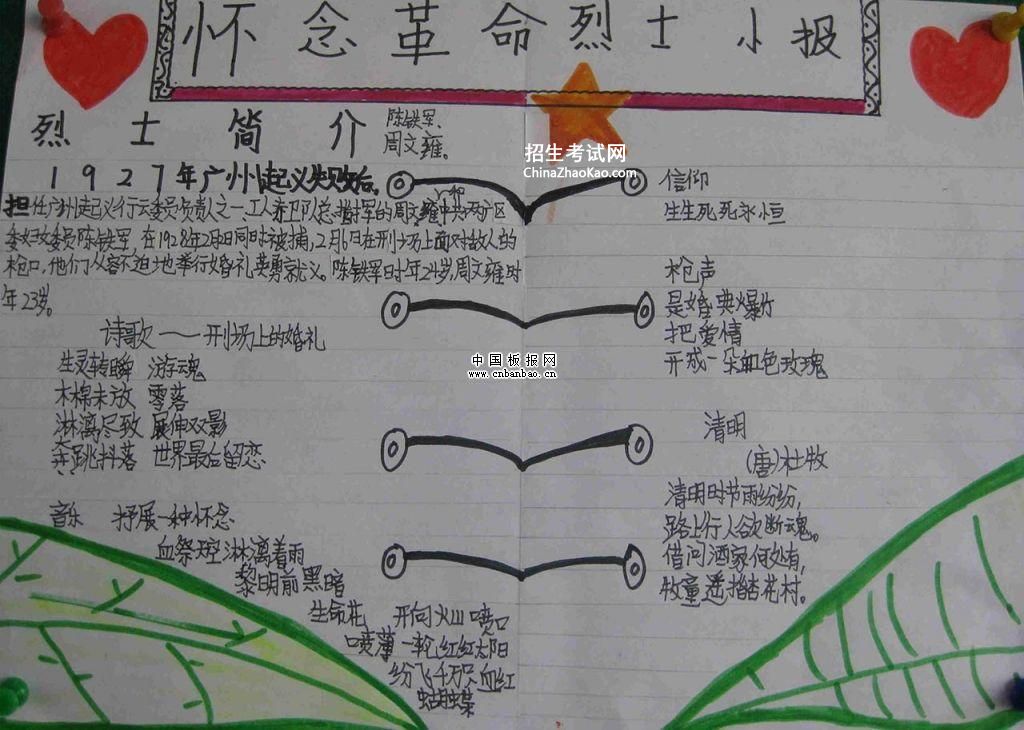 怀念革命烈士小报
烈士简介
陈铁军、
周文雍。
1927年广州起义失败后。
担任广州起义行动委员负责人之一,工人赤卫队总指挥的周文雍和中共两广区
委妇女委员陈铁军,在1928年2月2日同时被捕,2月6日在刑场上面对敌人的
枪口,他们从容不迫地举行婚礼英勇就义。陈铁军时年24岁,周文雍时
年23岁。
诗歌——刑场上的婚礼
生灵转瞬 游魂
木棉未放 零落
淋漓尽致 展伸双影
奔跳抖落 世界最后留恋
音乐 抒展一种怀念
血祭 淋漓着雨
黎明前黑暗
生命花 开向火山喷口
喷薄一轮红红太阳
纷飞千万只血红
蝴蝶
招生考试网
ChinaZhaoKao.com
信仰
生生死死永恒
枪声
是婚典爆竹
把爱情
开成一朵血色玫瑰
中国板报网
www.cnbanbao.cn
清明
(唐)杜牧
清明时节雨纷纷,
路上行人欲断魂。
借问酒家何处有,
牧童遥指杏花村。